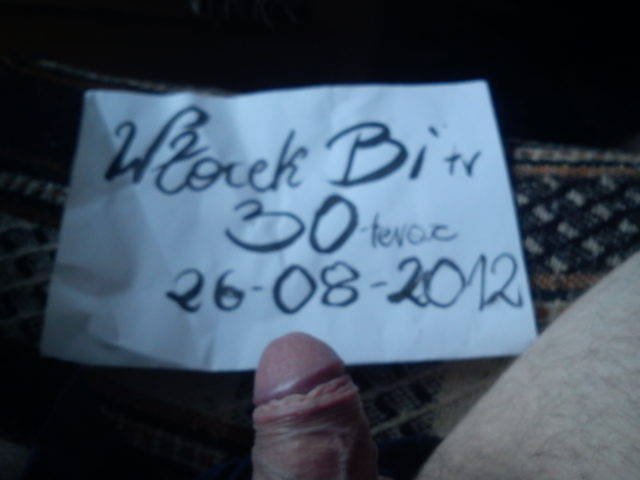 Włocek Bi tv
30-teraz
26-08-2012